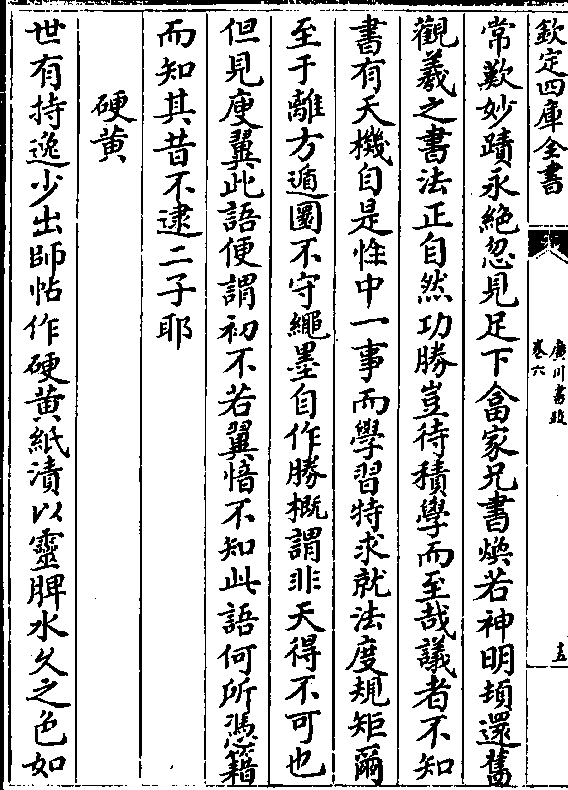 欽定四庫全書
廣川書跋
卷六
五
常歎妙蹟永絕忽見足下畣家兄書煥若神明頓還舊
觀羲之書法正自然功勝豈待積學而至哉議者不知
書有天機自是性中一事而學習特求就法度規矩爾
至于離方遁圓不守繩墨自作勝槪謂非天得不可也
但見庾翼此語便謂初不若翼愔不知此語何所馮籍
而知其昔不逮二子耶
硬黄
世有持逸少出師帖作硬黄紙漬以靈脾水久之色如